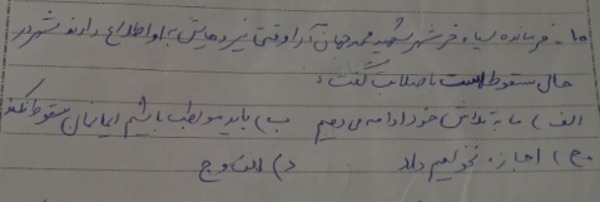 ۱۰- فرمانده سپاه خرمشهر شهید محمد جهان آرا وقتی نیروهایش به او اطلاع دادند شهر در
حال سقوط است با صلابت گفت:
الف) ما به تلاش خود ادامه می دهیم ب) باید مواظب باشیم ایمانمان سقوط نکند
ج) اجازه نخواهیم داد د) الف و ج